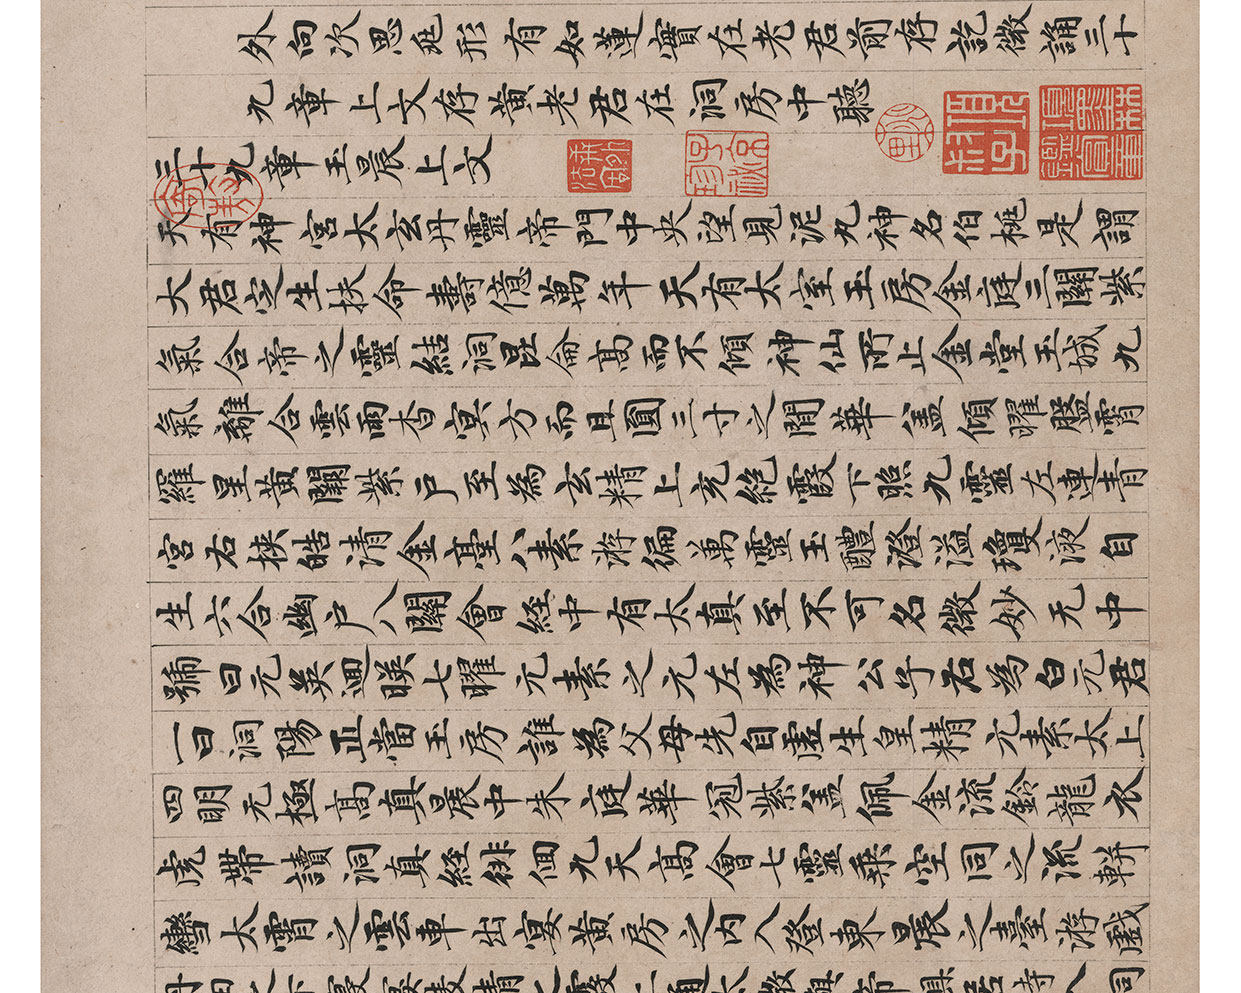 外向次思兆形有如蓮實在老君前存訖微誦三十
九章上文存黃老君在洞房中聽
三十九章玉晨上文
天有神宮太玄丹靈帝門中央望見泥丸神名伯桃是謂
大君定生扶命壽億萬年天有太室玉房金庭三關紫
氣合帝之靈結洞昆侖高而不傾神仙所止金堂玉城九
氣離合雲雨杳冥方而且圓三寸之間華盖傾曜盤霄
羅星黃闕紫戶至為玄精上充絕霞下照九靈左連青
宮右挾皓清金臺八素游徧萬靈玉醴澄溢瓊液自
生六合幽戶八關會經中有太真至不可名微妙无中
號曰元英迴暎七曜元素之元左為神公子右為白元君
一曰洞陽正當玉房誰為父母先自虛生皇精元素太上
四明无極高真晨中朱庭華冠紫盖佩金流鈴龍衣
虎帶讀洞真經徘佪九天高會七靈乗空同之流軿
轡太霄之雲車出宴黃房之內入登東晨之臺游戲